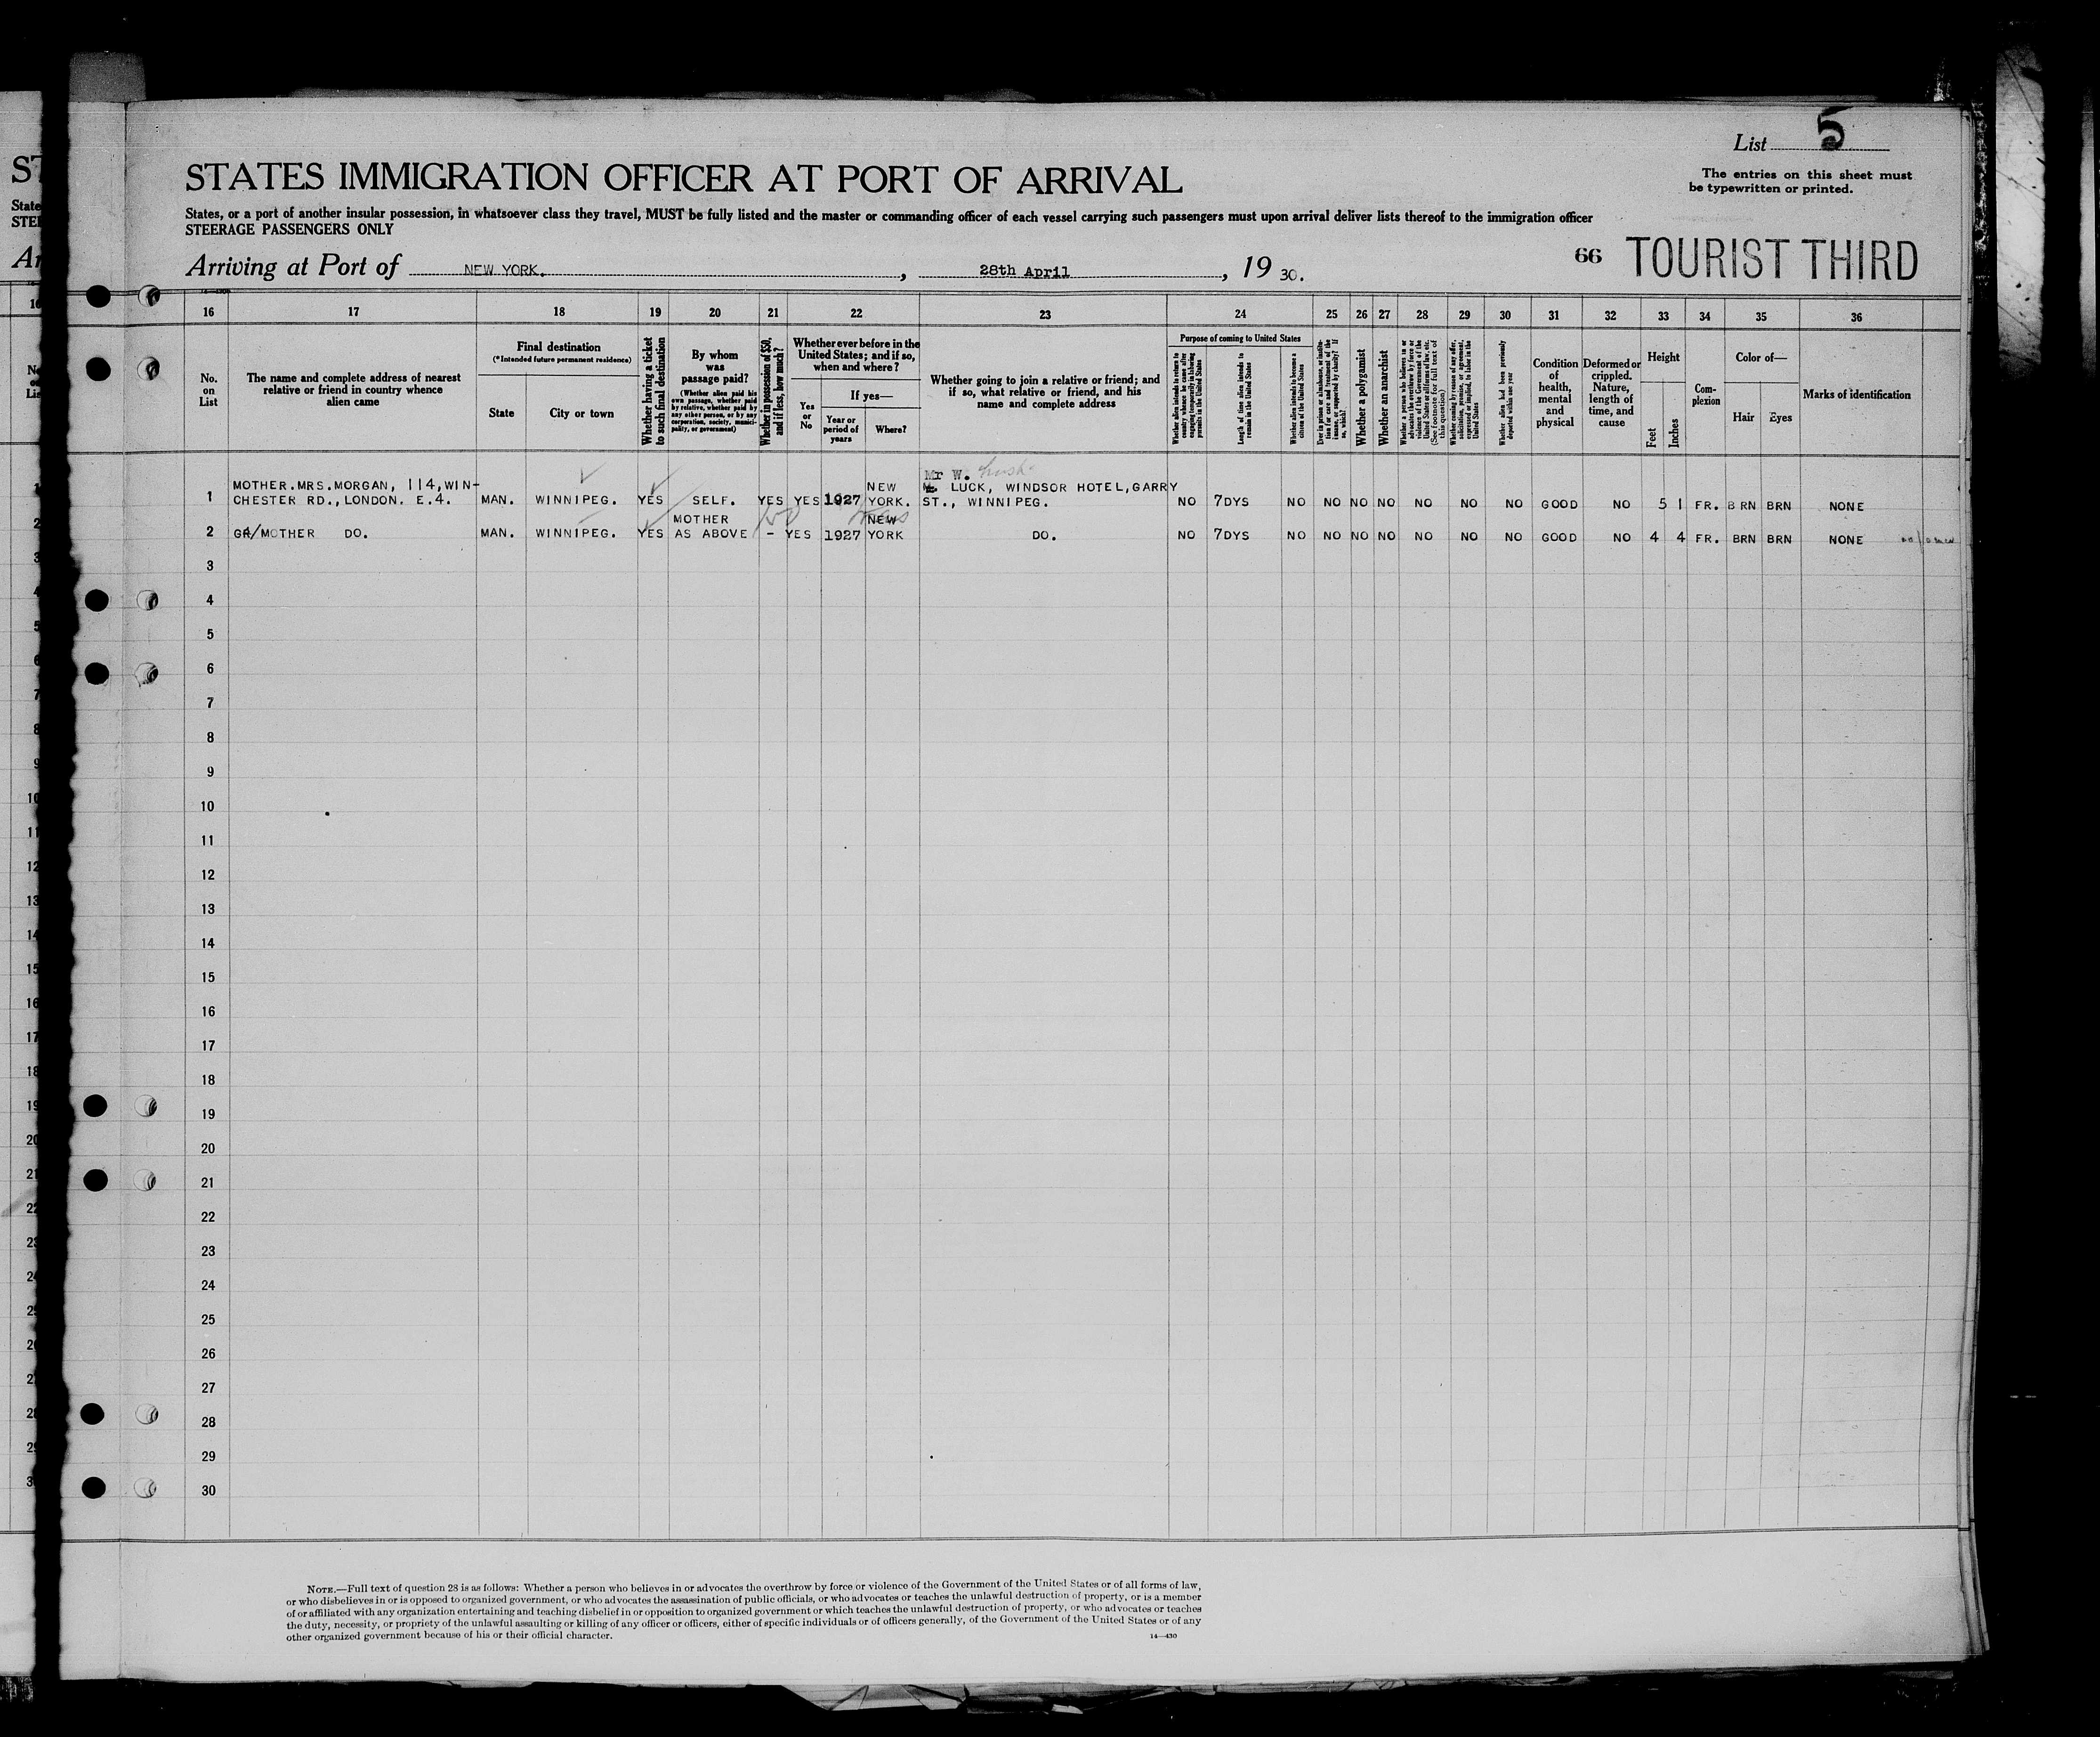 List 5
The entries on this sheet must
be typewritten or printed.
STATES IMMIGRATION OFFICER AT PORT OF ARRIVAL
States, or a port of another insular possession, in whatsoever class they travel, MUST be fully listed and the master or commanding officer of each vessel carrying such passengers must upon arrival deliver lists thereof to the immigration officer
STEERAGE PASSENGERS ONLY
66 TOURIST THIRD
Arriving at Port of NEW YORK. , 28th April , 19 30.
16 17 18 19 20 21 22 23 24 25 26 27 28 29 30 31 32 33 34 35 36
No.
on
List
The name and complete address of nearest
relative or friend in country whence
alien came
Final destination
(*Intended future permanent residence)
State
City or town
Whether having a ticket
to such final destination
By whom
was
passage paid?
(Whether alien paid his
own passage, whether paid
by relative, whether paid by
any other person, or by any
corporation, society, munici-
pality, or government)
Whether in possession of $50,
and if less, how much?
Whether ever before in the
United States; and if so,
when and where?
Yes
or
No
If yes—
Year or
period of
years
Where?
Whether going to join a relative or friend; and
if so, what relative or friend, and his
name and complete address
Purpose of coming to United States
Whether alien intends to return to
country whence he came after
engaging temporarily in laboring
pursuits in the United States
Length of time alien intends to
remain in the United States
Whether alien intends to become a
citizen of the United States
Ever in prison or almshouse, or institu-
tion for care and treatment of the
insane, or supported by charity? If
so, which?
Whether a polygamist
Whether an anarchist
Whether a person who believes in or
advocates the overthrow by force or
violence of the Government of the
United States or all forms of law, etc.
(See footnote for full text of
this question)
Whether coming by reason of any offer,
solicitation, promise, or agreement,
expressed or implied, to labor in the
United States
Whether alien had been previously
deported within one year
Condition
of
health,
mental
and
physical
Deformed or
crippled.
Nature,
length of
time, and
cause
Height
Feet
Inches
Com-
plexion
Color of—
Hair
Eyes
Marks of identification
1 MOTHER.MRS.MORGAN, 114,WIN-
CHESTER RD.,LONDON. E.4. MAN. WINNIPEG. YES SELF. YES YES 1927 NEW
YORK. Mr W.
LUCK, WINDSOR HOTEL,GARRY
ST., WINNIPEG. NO 7DYS NO NO NO NO NO NO NO GOOD NO 5 1 FR. BRN BRN NONE
2 GR/MOTHER DO. MAN. WINNIPEG. YES MOTHER
AS ABOVE - YES 1927 NEW
YORK DO. NO 7DYS NO NO NO NO NO NO NO GOOD NO 4 4 FR. BRN BRN NONE
3
4
5
6
7
8
9
10
11
12
13
14
15
16
17
18
19
20
21
22
23
24
25
26
27
28
29
30
NOTE.—Full text of question 28 is as follows: Whether a person who believes in or advocates the overthrow by force or violence of the Government of the United States or of all forms of law,
or who disbelieves in or is opposed to organized government, or who advocates the assassination of public officials, or who advocates or teaches the unlawful destruction of property, or is a member
of or affiliated with any organization entertaining and teaching disbelief in or opposition to organized government or which teaches the unlawful destruction of property, or who advocates or teaches
the duty, necessity, or propriety of the unlawful assaulting or killing of any officer or officers, either of specific individuals or of officers generally, of the Government of the United States or of any
other organized government because of his or their official character.
14—430